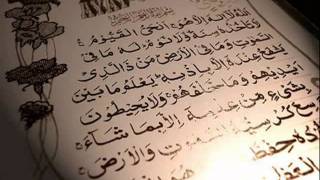 اَللّٰهُ لَا اِلٰهَ اِلَّا هُوَ اَلْحَيُّ الْقَيُّومُ
لَا تَأْخُذُهُ سِنَةٌ وَلَا نَوْمٌ لَهُ مَا فِى
السَّمٰوَاتِ وَمَا فِى الْاَرْضِ مَنْ ذَا الَّذِى
يَشْفَعُ عِنْدَهُ اِلَّا بِاِذْنِهِ يَعْلَمُ مَا بَيْنَ
اَيْدِيهِمْ وَمَا خَلْفَهُمْ وَلَا يُحِيطُونَ
بِشَىْءٍ مِنْ عِلْمِهِ اِلَّا بِمَا شَاءَ
وَسِعَ كُرْسِيُّهُ السَّمٰوَاتِ وَالْاَرْضَ